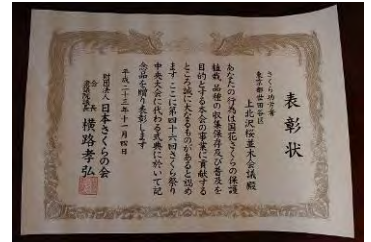 表彰状
さくら功労者
東京都世田谷区
上北沢桜並木会議殿
あなたの行為は国花さくらの保護
植栽、品種の収集保存及び普及を
目的とする本会の事業に貢献する
ところ誠に大なるものがあると認め
ます ここに第四十六回さくら祭り
中央大会に代わる式典に於いて記
念品を贈り表彰します
平成二十三年十一月四日
財団法人 日本さくらの会
会長
衆議院議長 横路孝弘